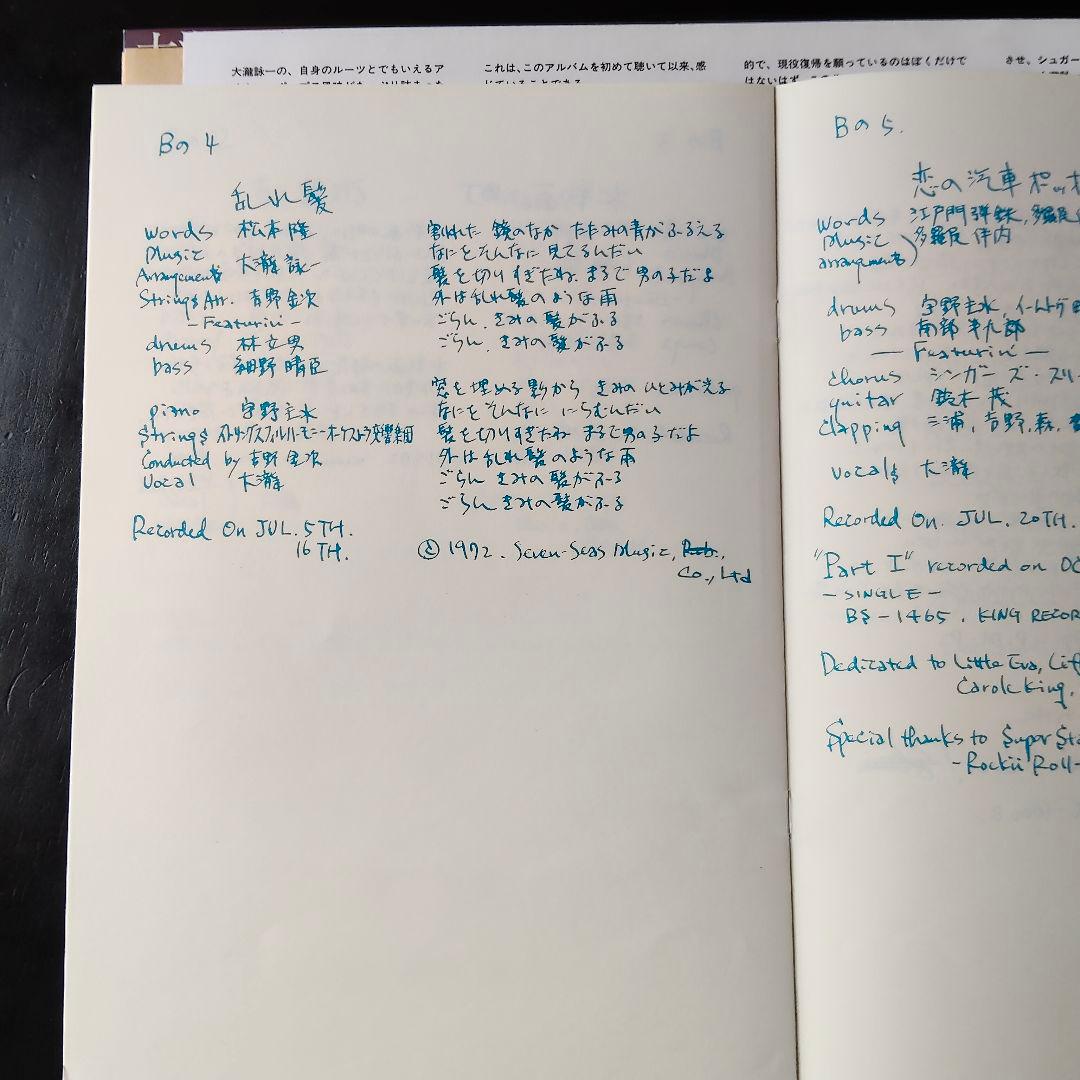 大瀧詠一の、自身のルーツとでもいえるア
これは、このアルバムを初めて聴いて以来、感
じていることである
的で、現役復帰を願っているのはぼくだけで
はないはず
させ、シュガー
Bの4
乱れ髪
words 松本隆
Music
Arrangements 大瀧詠一
Strings Arr. 吉野金次
-Featurin'-
drums 林立男
bass 細野晴臣
piano 宇野主水
Strings
Conducted by 吉野金次
Vocal 大瀧
Recorded On JUL. 5TH.
16TH.
割れた 鏡のなか たたみの青がふるえる
なにをそんなに 見てるんだい
髪を切りすぎたね まるで男の子だよ
外は乱れ髪のような雨
ごらん、きみの髪がふる
ごらん、きみの髪がふる
窓を埋める影から きみのひとみが見える
なにをそんなに にらむんだい
髪を切りすぎたね まるで男の子だよ
外は乱れ髪のような雨
ごらん きみの髪がふる
ごらん きみの髪がふる
1972. Seven-Seas Music,
Co., Ltd
Bの5.
恋の汽車ポッポ
words 江戸門弾鉄,
Music 多羅尾伴内
arrangements
drums 宇野主水,
bass
-Featurin'-
chorus シンガーズ・スリー
guitar 鈴木茂
clapping 三浦, 吉野, 森,
vocals 大瀧
Recorded On. JUL. 20TH.
"Part I" recorded on OC
-SINGLE-
BS-1465. KING RECOR
Dedicated to Little Eva,
Carole King,
Special thanks to Super
-Rockii Roll-